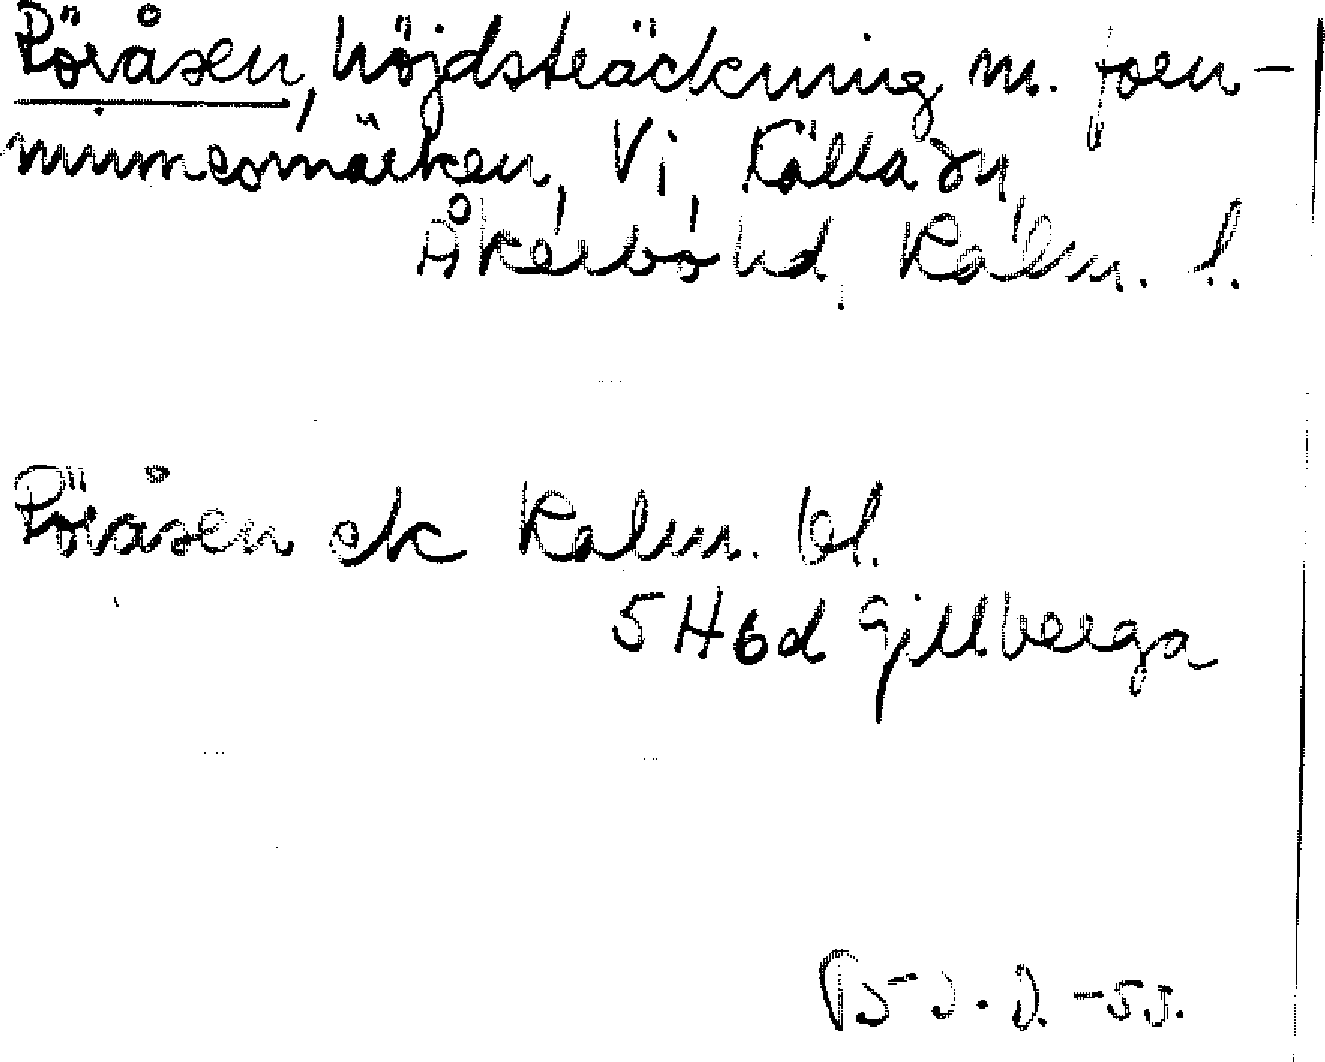 Röråsen, höjdsträckning m. forn-
minnesmärken, V i, Källa sn,
Åkerbo hd, Kalm. l.
Röråsen ek Kalm. bl.
5 H 6d Gillberga